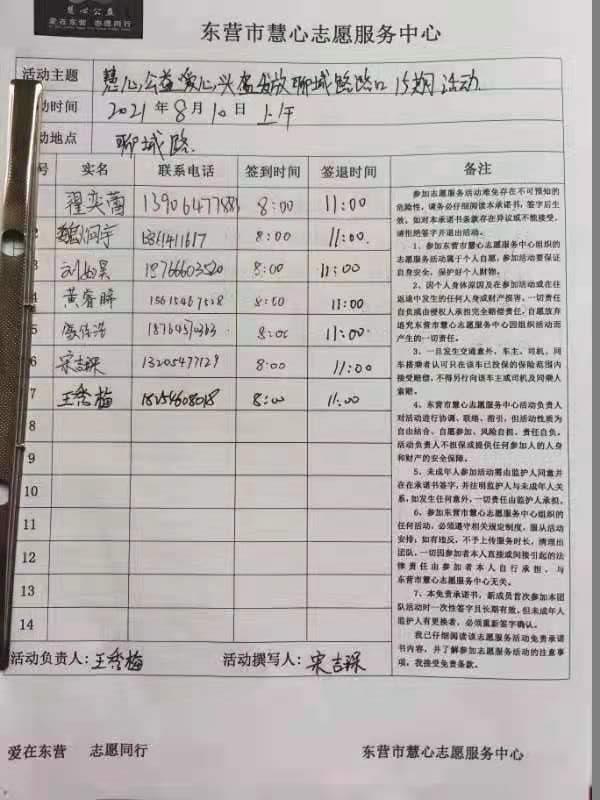 慧心公益
爱在东营 志愿同行
东营市慧心志愿服务中心
活动主题 慧心公益爱心 发放聊城路路口15期活动
动时间 2021年8月10日 上午
动地点 聊城路
号 实名 联系电话 签到时间 签退时间 备注
翟奕 8:00 11:00
2 魏 宇 13861411617 8:00 11:00
3 刘 昊 18766603520 8:00 11:00
4 黄睿 15615467528 8:00 11:00
5 浩 8:00 11:00
6 宋吉琛 13205477129 8:00 11:00
7 王秀梅 18254608018 8:00 11:00
8
9
10
11
12
13
14
参加志愿服务活动难免存在不可预知的
危险性,请务必仔细阅读本承诺书,签字后生
效。如对本承诺书条款存在异议或不能接受,
请拒绝签字并退出活动。
1、参加东营市慧心志愿服务中心组织的
志愿活动属于个人自愿,参加活动要保证
自身安全,保护好个人财物。
2、因个人身体原因及在参加活动或在往
返途中发生的任何人身或财产损害,一切责任
自负或由侵权人承担完全赔偿责任,自愿放弃
追究东营市慧心志愿服务中心因组织活动而
产生的一切责任。
3、一旦发生交通意外,车主、司机、同
车搭乘者认可只在该车已投保的保险范围内
接受赔偿,不得另行向该车主或司机及同乘人
索赔。
4、东营市慧心志愿服务中心活动负责人
对活动进行协调、联络、指引,但活动性质为
自由结合、自愿参加、风险自担、责任自负。
活动负责人不担保或提供任何参加人的人身
和财产的安全保障。
5、未成年人参加活动需由监护人同意并
在在承诺书签字,并注明监护人与未成年人关
系,如发生任何意外,一切责任由监护人承担。
6、参加东营市慧心志愿服务中心组织的
任何活动,必须遵守相关规定制度,服从活动
安排;如有违反,不予上传服务时长,清理出
团队。一切因参加者本人直接或间接引起的法
律责任由参加者本人自行承担,与
东营市慧心志愿服务中心无关。
7、本免责承诺书,新成员首次参加本团
队活动时一次性签字且长期有效。但未成年人
监护人有更换者,必须重新签字确认。
我已仔细阅读该志愿服务活动免责承诺
书内容,并了解参加志愿服务活动的注意事
项,我接受免责条款。
活动负责人:王秀梅 活动撰写人:宋吉琛
爱在东营 志愿同行 东营市慧心志愿服务中心